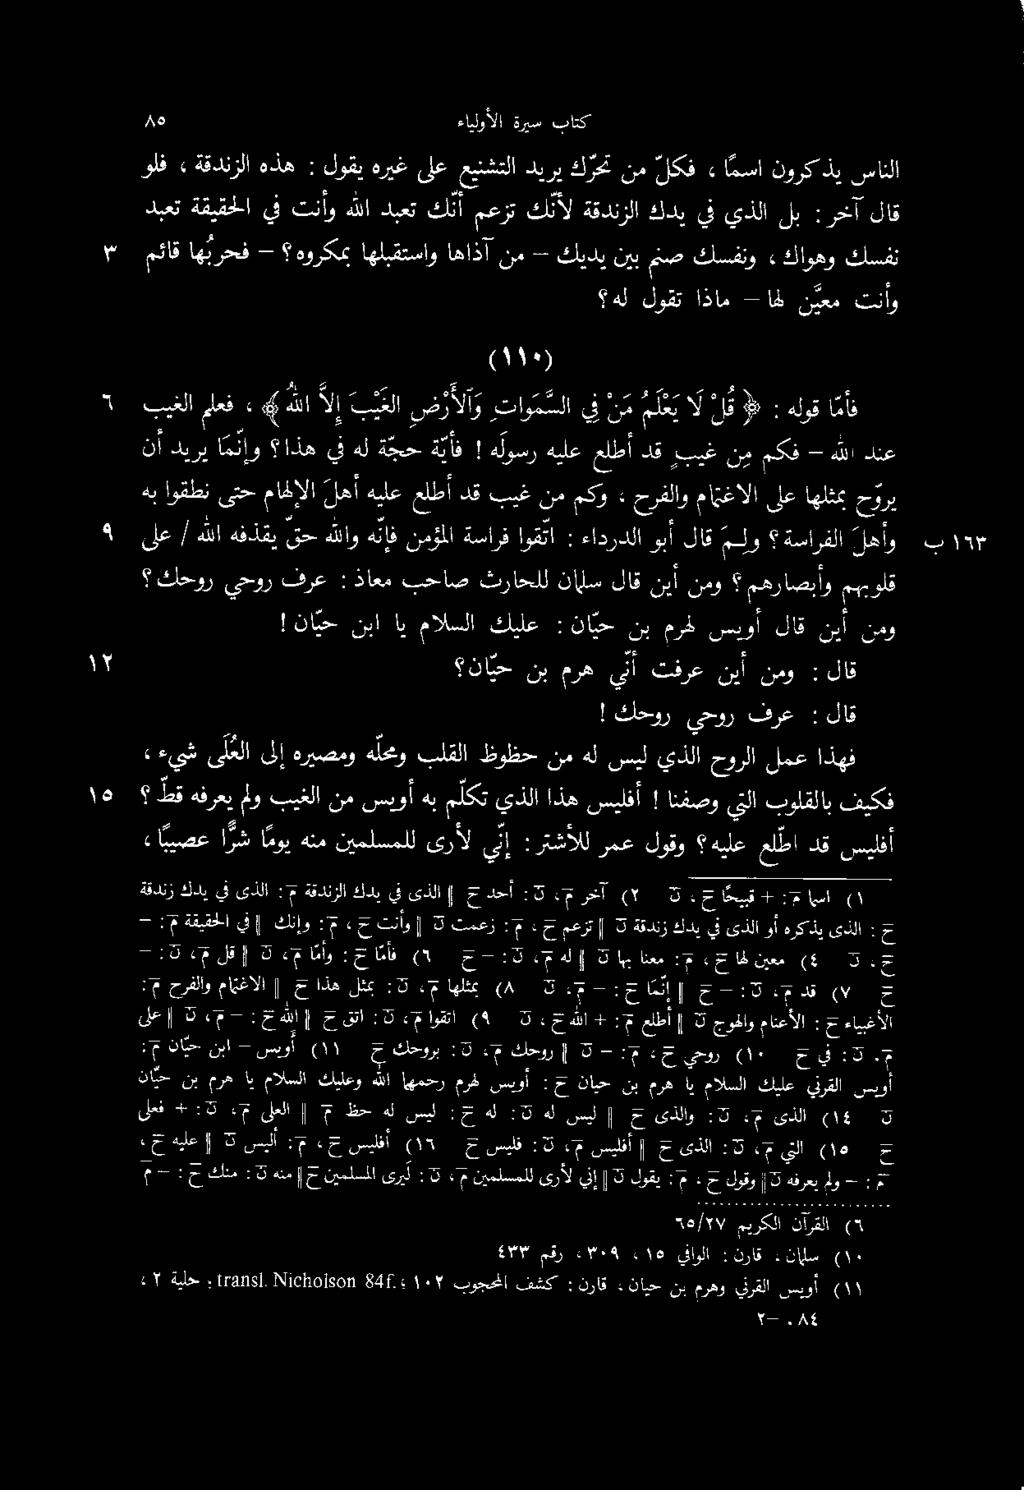 كتاب سيرة الأولياء ٨٥
الناس يذكرون اسماً ، فكلّ من تحرّك يريد التشنيع على غيره يقول : هذه الزندقة ، فلو
قال آخر : بل الذي في يدك الزندقة لأنّك تزعم أنّك تعبد الله وأنت في الحقيقة تعبد
نفسك وهواك ، ونفسك صنم بين يديك – من آذاها واستقبلها بمكروه؟ – فحربُها قائم ٣
وأنت معيّن لها – ماذا تقول له؟
(١١٠)
فأمّا قوله : ﴿ قُلْ لَا يَعْلَمُ مَنْ فِي السَّمَواتِ وَالأَرْضِ الغَيْبَ إِلاَّ اللهُ ﴾ ، فعلم الغيب ٦
عند الله – فكم مِن غيبٍ قد أطلع عليه رسولَه ! فأيّة حجّة له في هذا؟ وإنّما يريد أن
يروّح بمثلها على الاغتمام والفرح ، وكم من غيب قد أطلع عليه أهلَ الإلهام حتى نطقوا به
وأهلَ الفراسة؟ ولِـمَ قال أبو الدرداء : اتّقوا فراسة المؤمن فإنّه والله حقّ يقذفه الله / على ٩ ١٦٣ ب
قلوبهم وأبصارهم؟ ومن أين قال سلمان للحارث صاحب معاذ : عرف روحي روحك؟
ومن أين قال أويس لهرم بن حيّان : عليك السلام يا ابن حيّان !
قال : ومن أين عرفت أنّي هرم بن حيّان؟ ١٢
قال : عرف روحي روحك !
فهذا عمل الروح الذي ليس له من حظوظ القلب ومحلّه ومصيره إلى العُلَى شيء ،
فكيف بالقلوب التي وصفنا ! أفليس هذا الذي تكلّم به أويس من الغيب ولم يعرفه قطّ ؟ ١٥
أفليس قد اطّلع عليه؟ وقول عمر للأشتر : إنّي لأرى للمسلمين منه يوماً شرًّا عصيباً ،
١) اسما م : + قبيحًا ح ، ن ٢) آخر م ، ن : أحد ح || الذى في يدك الزندقة م : الذى في يدك زندقة
ح : الذى يذكره أو الذى في يدك زندقة ن || تزعم ح ، م : زعمت ن || وأنت ح ، م : وإنك || في الحقيقة م : –
ح ، ن ٤) معين لها ح ، م : معنا بها ن || له م ، ن : – ح ٦) فأمّا ح : وأمّا م ، ن || قل م ، ن : –
ح ٧) قد م ، ن : – ح || إنّما ح : – م ، ن ٨) بمثلها م ، ن : بمثل هذا ح || الاغتمام والفرح م :
الأغبياء ح : الأعنام والهوج ن || أطلع م : + الله ح ، ن ٩) اتقوا م ، ن : اتق ح || الله ح : – م ، ن || على
م ، ن : في ح ١٠) روحي ح ، م : – ن || روحك م ، ن : بروحك ح ١١) أويس – ابن حيّان م :
أويس القرني عليك السلام يا هرم بن حيان ح : أويس لهرم رحمهما الله وعليك السلام يا هرم بن حيّان
ن ١٤) الذى م ، ن : والذى ح || ليس له ن : له ح : ليس له حظ م || العلى م ، ن : + فعلى
ح ١٥) التي م ، ن : الذى ح || أفليس م ، ن : فليس ح ١٦) أفليس ح ، م : أليس ن || عليه ح ،
م : – ولم يعرفه ن || وقول ح ، م : يقول ن || إني لأرى للمسلمين م ، ن : ليرى المسلمين ح || منه ن : منك ح : – م
٦) القرآن الكريم ٦٥/٢٧
١٠) سلمان ، قارن : الوافي ١٥ ، ٣٠٩ ، رقم ٤٣٣
١١) أويس القرني وهرم بن حيان ، قارن : كشف المحجوب ١٠٢ ؛ transl. Nicholson 84f. ؛ حلية ٢ ،
٨٤ ، –٢